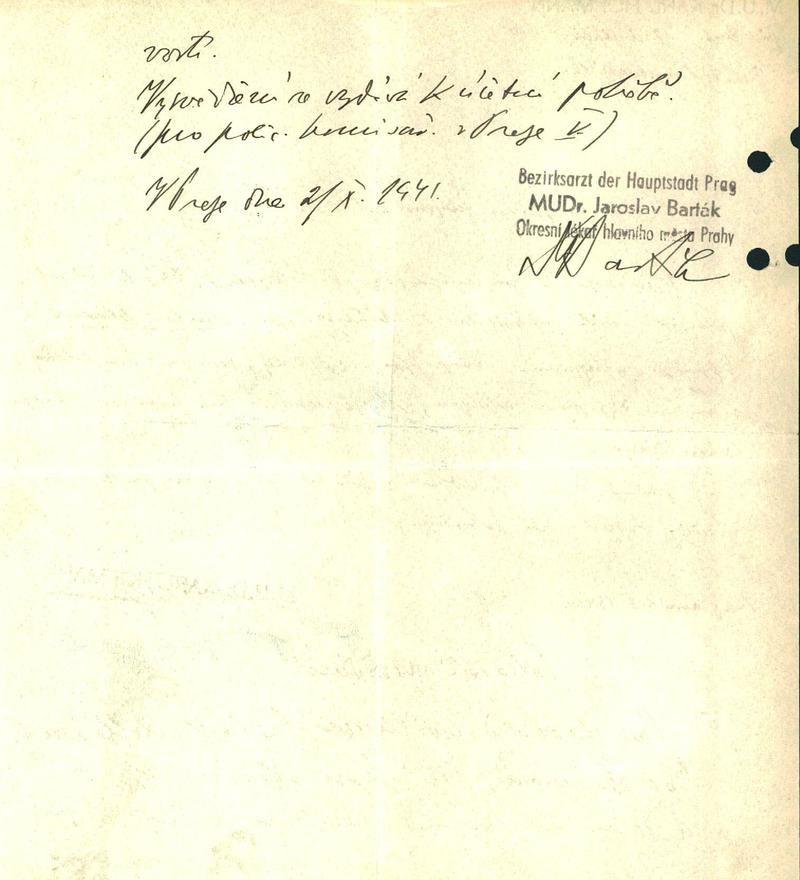 vosti.
Vysvědčení se vydává k úřední potřebě.
(pro polic. komisař. v Praze V.)
V Praze dne 2/X. 1941.
Bezirksarzt der Hauptstadt Prag
MUDr. Jaroslav Barták
Okresní lékař hlavního města Prahy
Barták